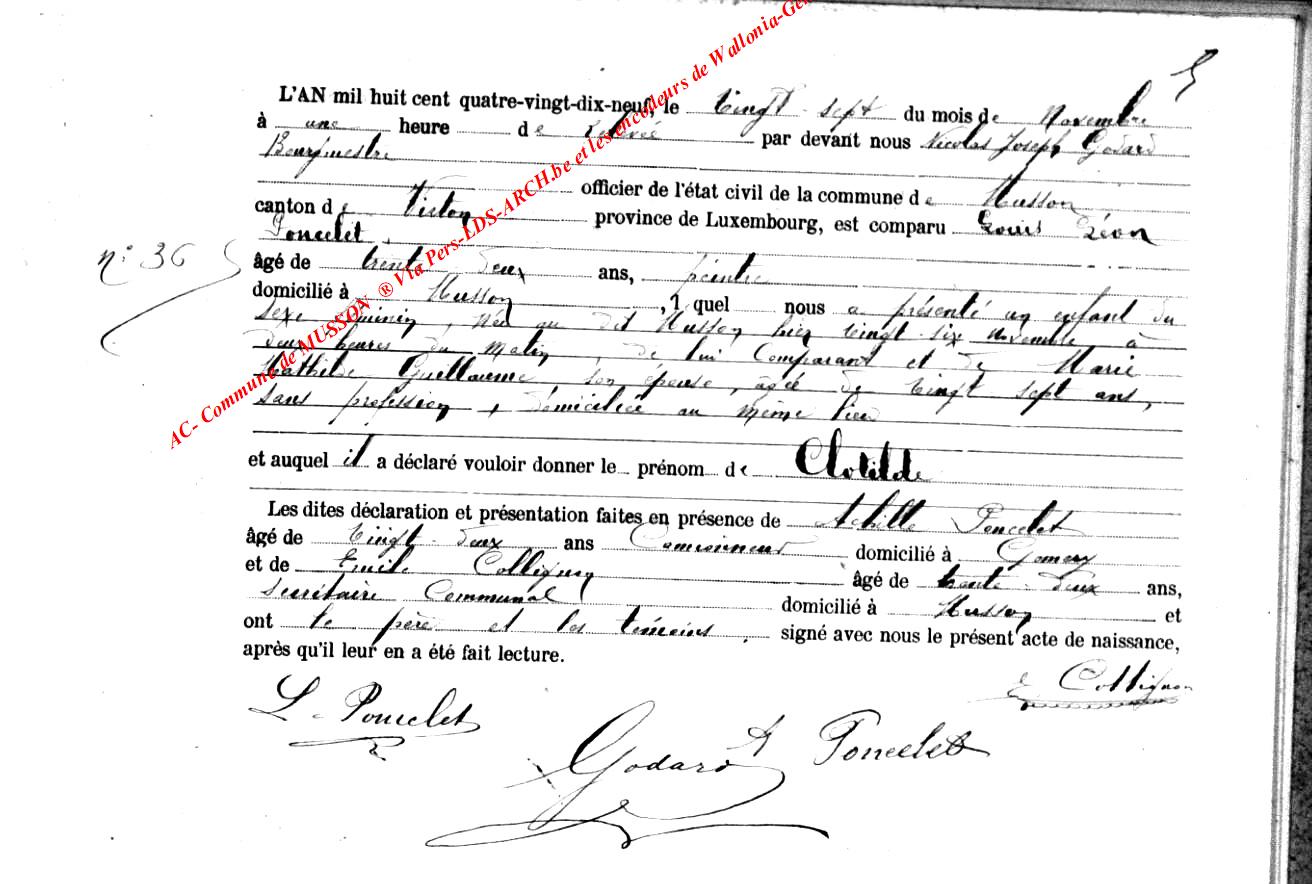 5
L'AN mil huit cent quatre-vingt-dix-neuf, le vingt-sept du mois de Novembre
à une heure de relevée par devant nous Nicolas Joseph Godard
Bourgmestre
officier de l'état civil de la commune de Musson
canton de Virton province de Luxembourg, est comparu Louis Léon
Poncelet,
n° 36
âgé de trente deux ans, peintre
domicilié à Musson, l quel nous a présenté un enfant du
sexe féminin, née au dit Musson hier vingt-six novembre à
deux heures du matin, de lui comparant et de Marie
Mathilde Guillaume, son épouse, âgée de vingt sept ans,
sans profession, domiciliée au même lieu
et auquel il a déclaré vouloir donner le prénom de Clotilde
Les dites déclaration et présentation faites en présence de Achille Poncelet
âgé de vingt-deux ans Camionneur domicilié à Gomery
et de Emile Collignon âgé de trente-deux ans,
secrétaire communal domicilié à Musson et
ont le père et les témoins, signé avec nous le présent acte de naissance,
après qu'il leur en a été fait lecture.
E Collignon
L. Poncelet
Godard
A Poncelet
AC- Commune de MUSSON ® Via Pers-LDS-ARCH.be et les encodeurs de Wallonia-Ge